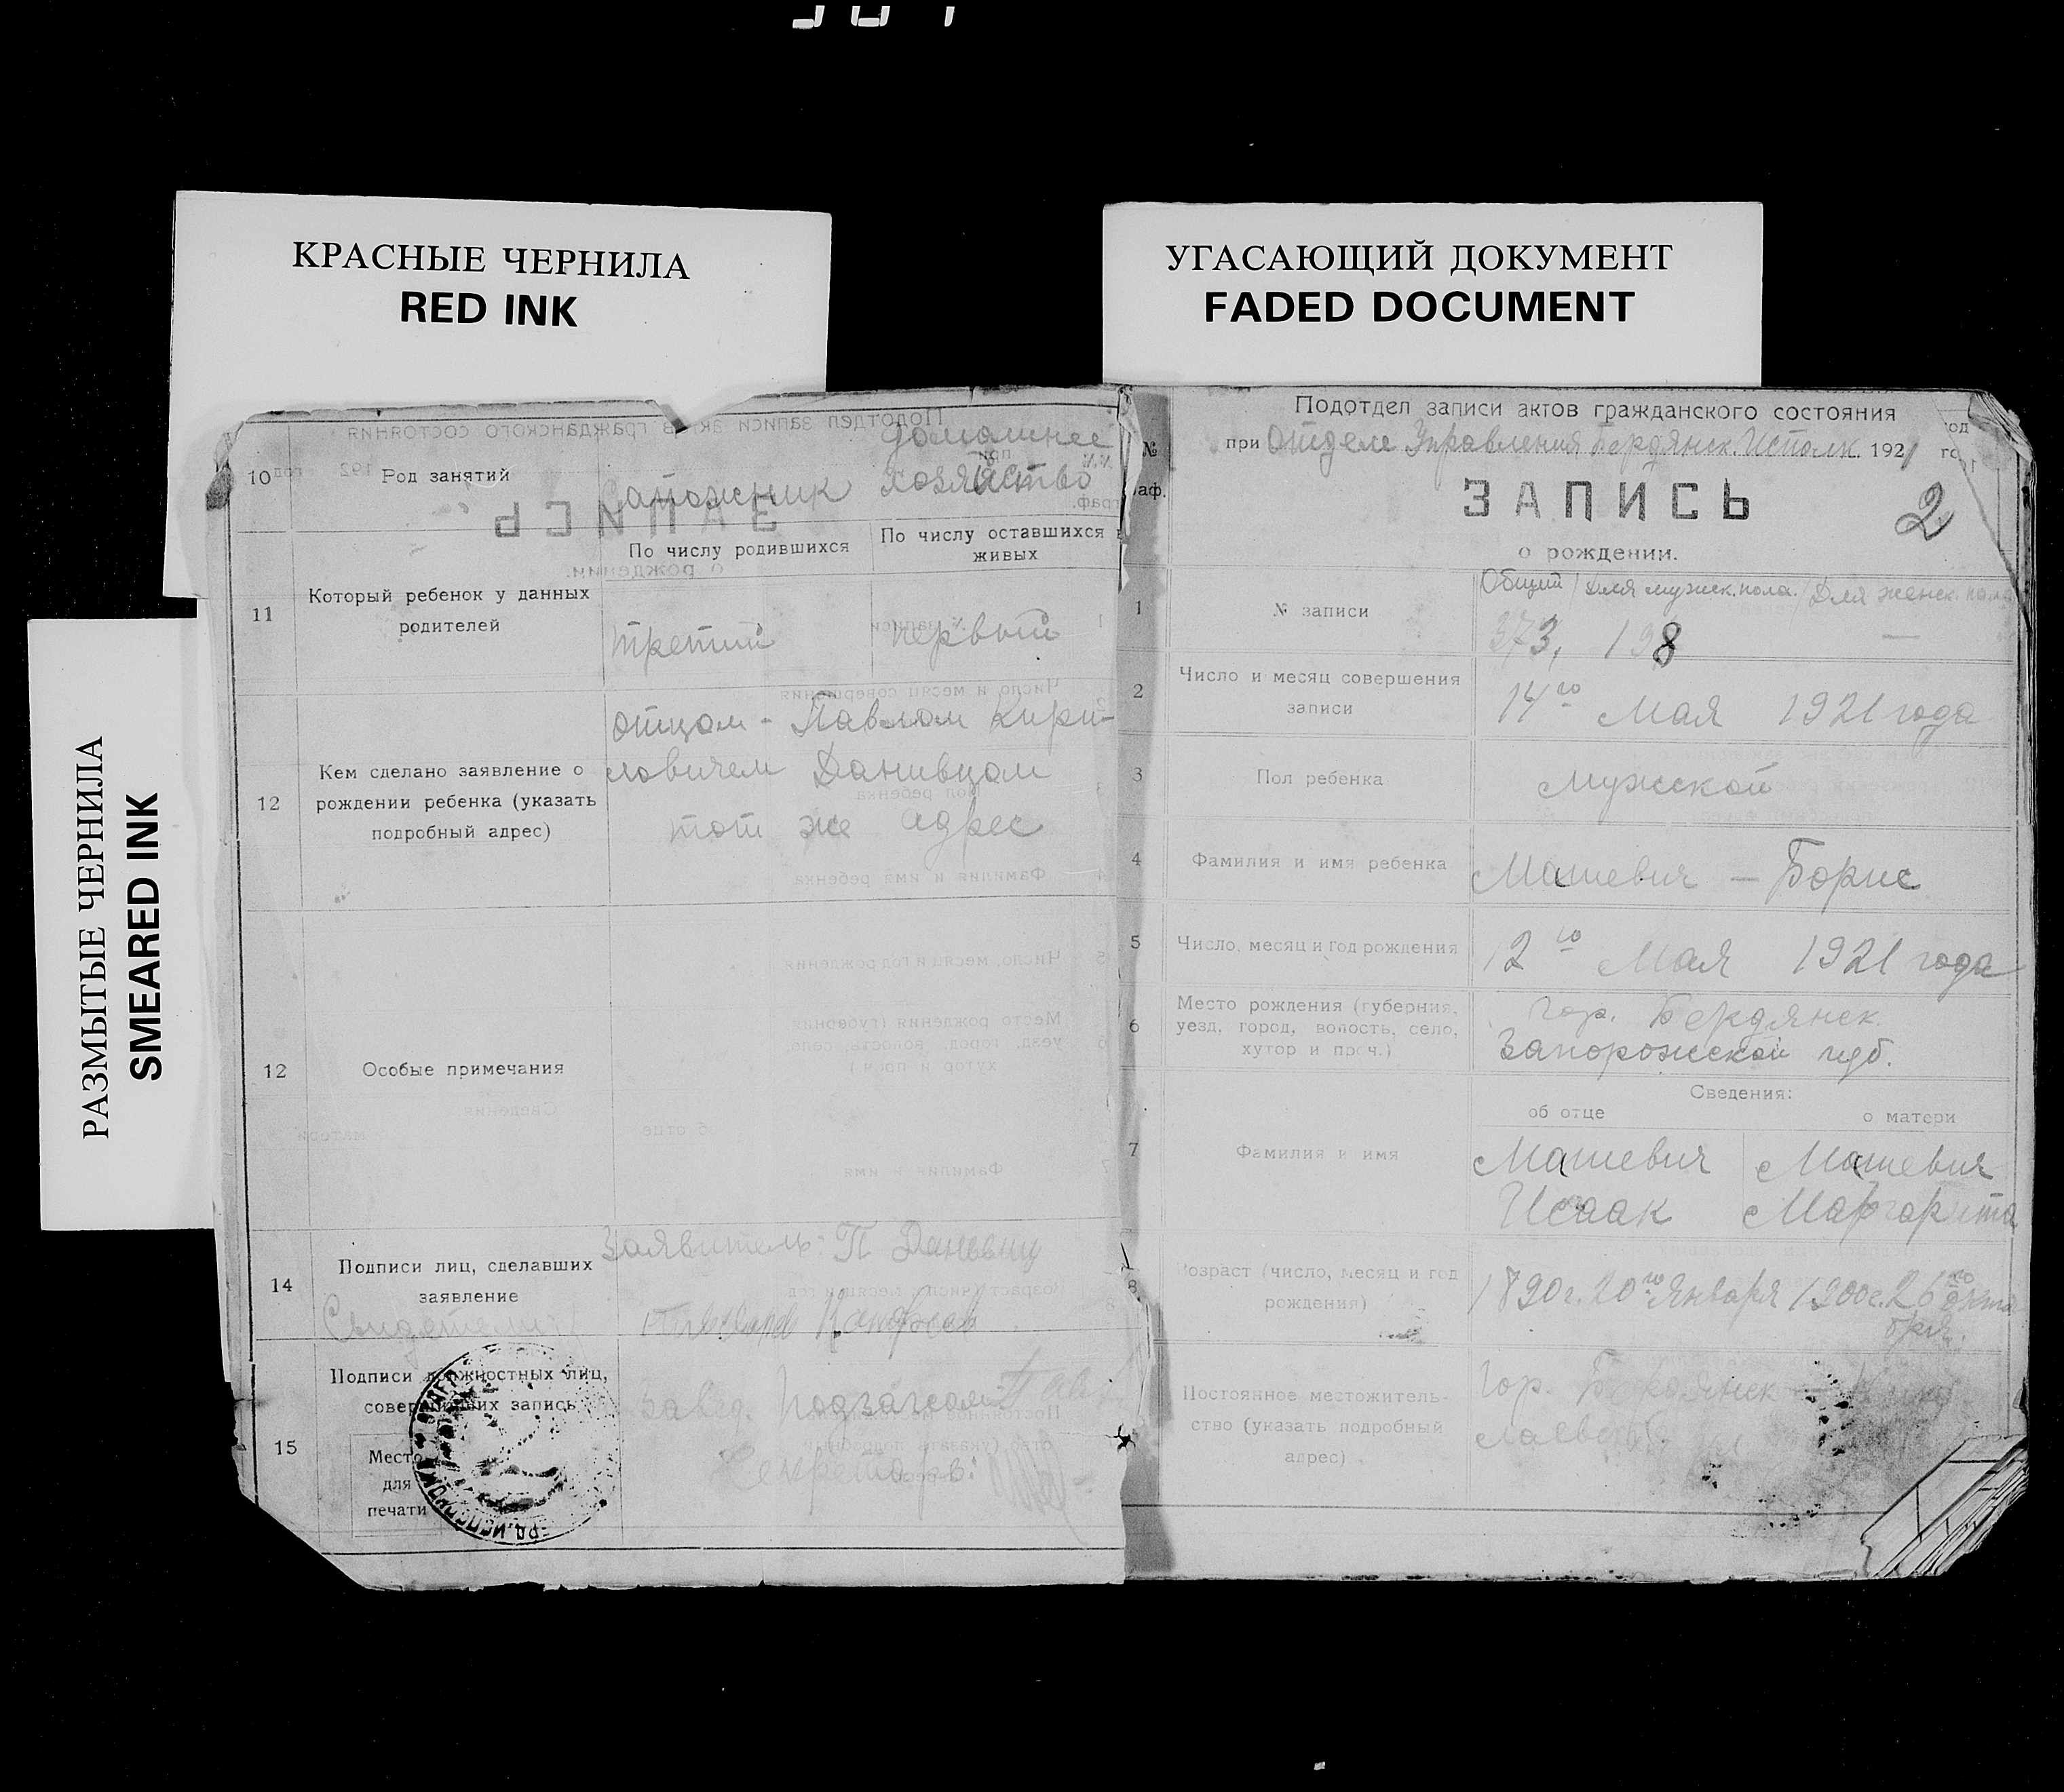 КРАСНЫЕ ЧЕРНИЛА
RED INK
УГАСАЮЩИЙ ДОКУМЕНТ
FADED DOCUMENT
РАЗМЫТЫЕ ЧЕРНИЛА
SMEARED INK
10 Род занятий Сапожник домашнее хозяйство
По числу родившихся По числу оставшихся в живых
11 Который ребенок у данных родителей третий первый
12 Кем сделано заявление о рождении ребенка (указать подробный адрес)
отцом - Павлом Кири-
ловичем Данивцом
тот же адрес
12 Особые примечания
14 Подписи лиц, сделавших заявление
Заявитель: П
Свидетели:
15 Подписи должностных лиц, совершивших запись
Завед. Подзагсом
Секретарь:
Место
для
печати
Подотдел записи актов гражданского состояния
при Отделе Управления Бердянск. Исполк. 1921 год
ЗАПИСЬ
2
о рождении.
Общий / Для мужск. пола. / Для женск. пола
1 № записи 373, 198 —
2 Число и месяц совершения записи 14го Мая 1921 года
3 Пол ребенка Мужской
4 Фамилия и имя ребенка Машевич — Борис
5 Число, месяц и год рождения 12го Мая 1921 года
6 Место рождения (губерния, уезд, город, волость, село, хутор и проч.)
гор. Бердянск.
Запорожской губ.
Сведения:
об отце о матери
7 Фамилия и имя
Машевич Машевич
Исаак Маргарита
8 Возраст (число, месяц и год рождения)
1890г. 20го Января 1900г. 26го октя
бря.
Постоянное местожитель-
ство (указать подробный
адрес)
Гор. Бердянск